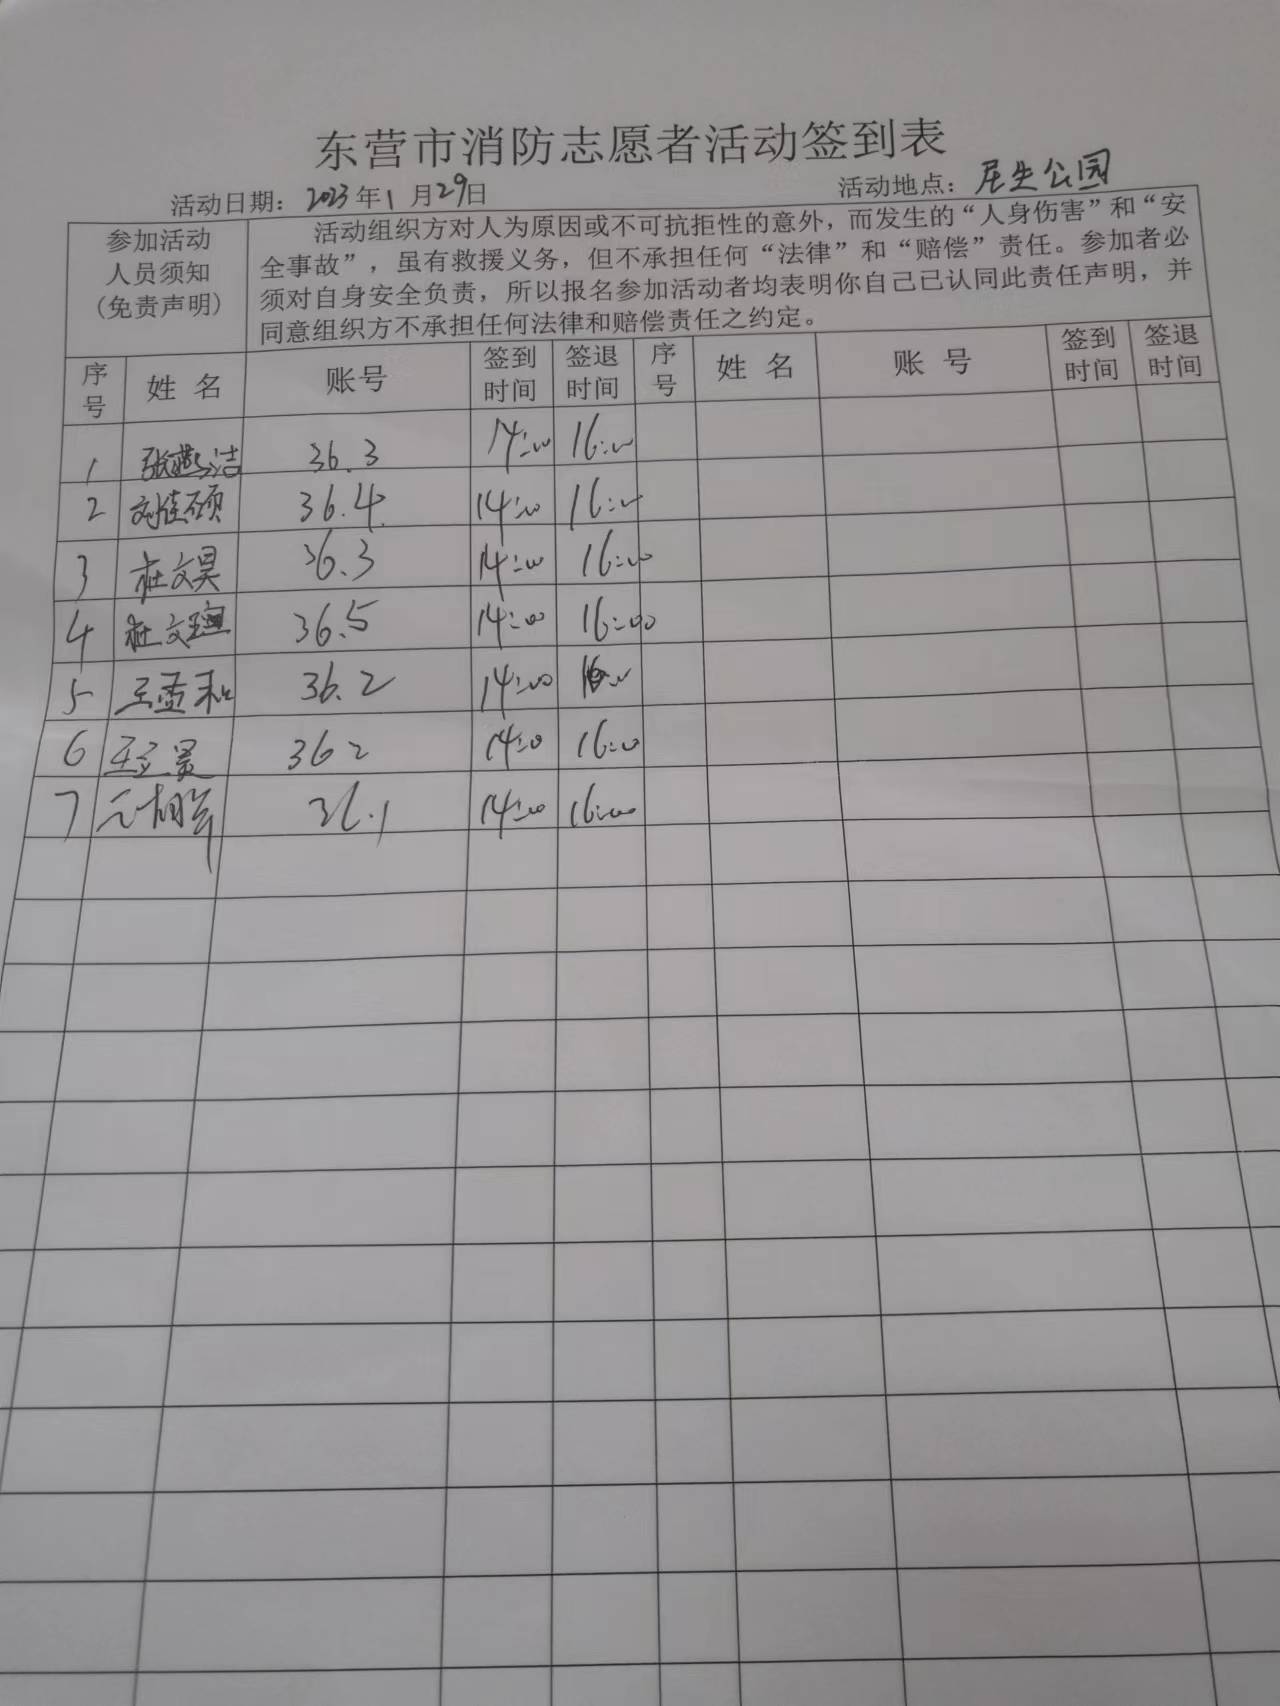 东营市消防志愿者活动签到表
活动日期：2023年1月29日 活动地点：公园
参加活动人员须知(免责声明)
活动组织方对人为原因或不可抗拒性的意外，而发生的“人身伤害”和“安
全事故”，虽有救援义务，但不承担任何“法律”和“赔偿”责任。参加者必
须对自身安全负责，所以报名参加活动者均表明你自己已认同此责任声明，并
同意组织方不承担任何法律和赔偿责任之约定。
序号 姓名 账号 签到时间 签退时间 序号 姓名 账号 签到时间 签退时间
1 张燕洁 36.3 14:00 16:00
2 刘佳硕 36.4 14:00 16:00
3 杜文昊 36.3 14:00 16:00
4 杜文 36.5 14:00 16:00
5 王孟和 36.2 14:00 16:00
6 36.2 14:00 16:00
7 36.1 14:00 16:00